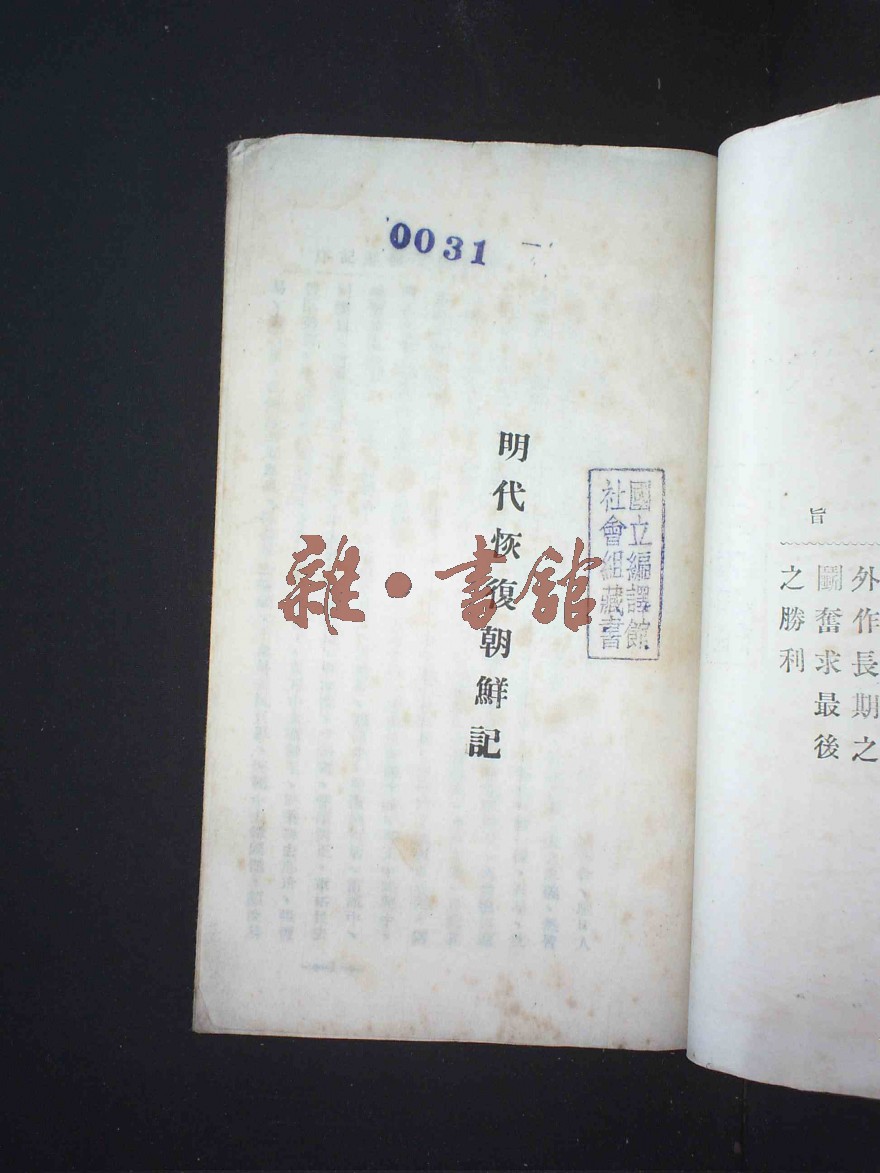 旨
外作長期之
鬭奮求最後
之勝利
0031
國立編譯館
社會組藏書
明代恢復朝鮮記
雜·書館